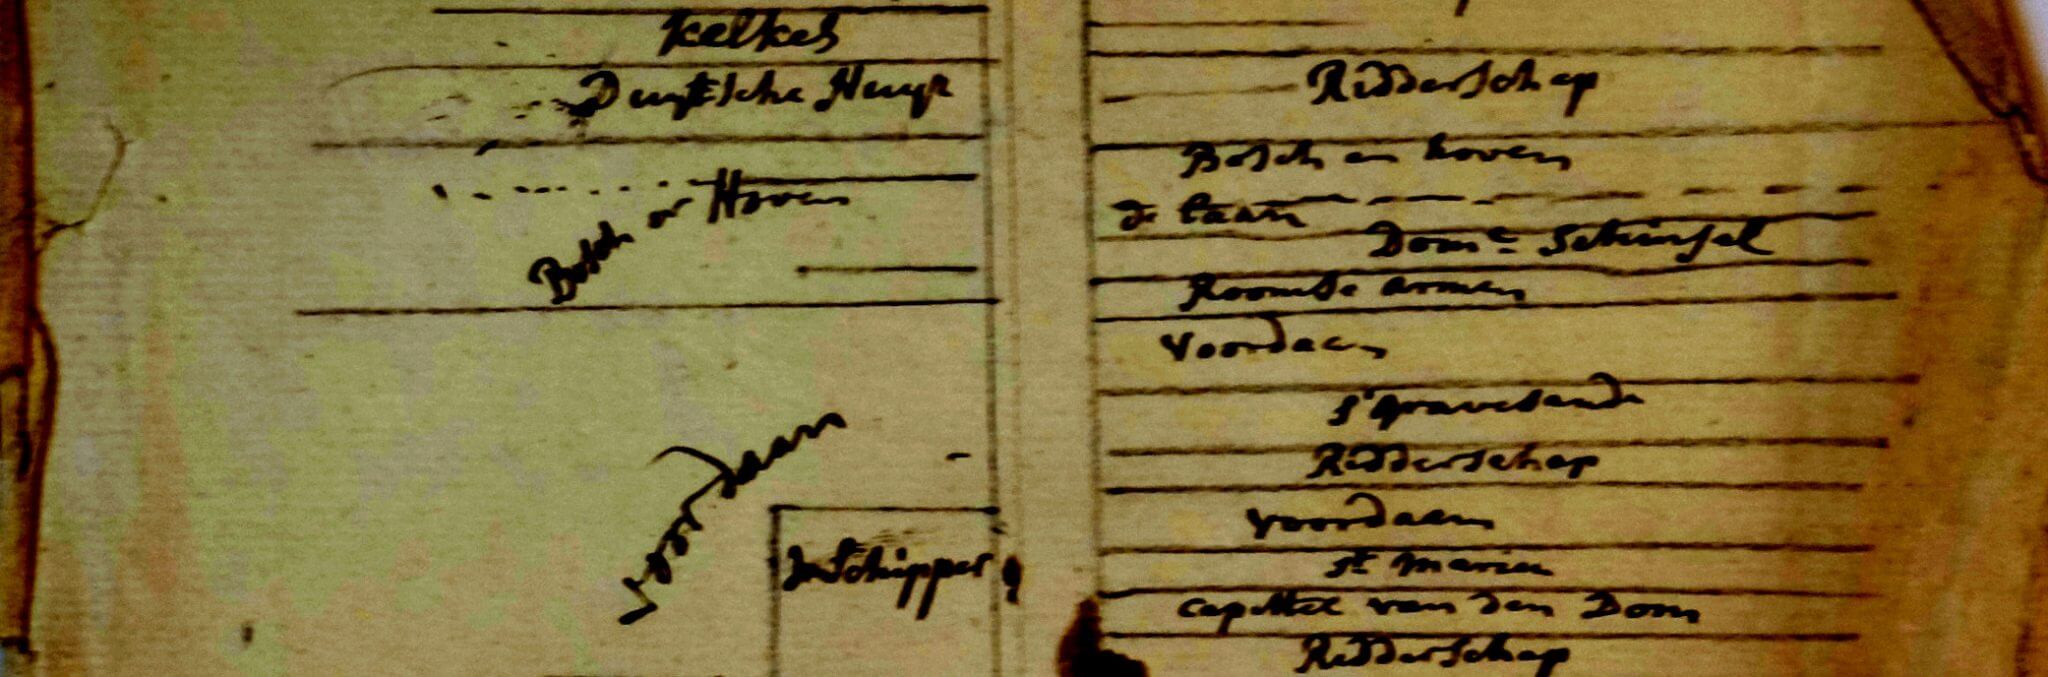 Kelkes
Deuytsche Huys
Bosch en Hoven
Voordaan
Jn Schipper
Ridderschap
Bosch en hoven
de laan
Domc Schinsel
Roomse armen
Voordaen
s'Gravesande
Ridderschap
Voordaen
St Marien
Capittel van den Dom
Ridderschap